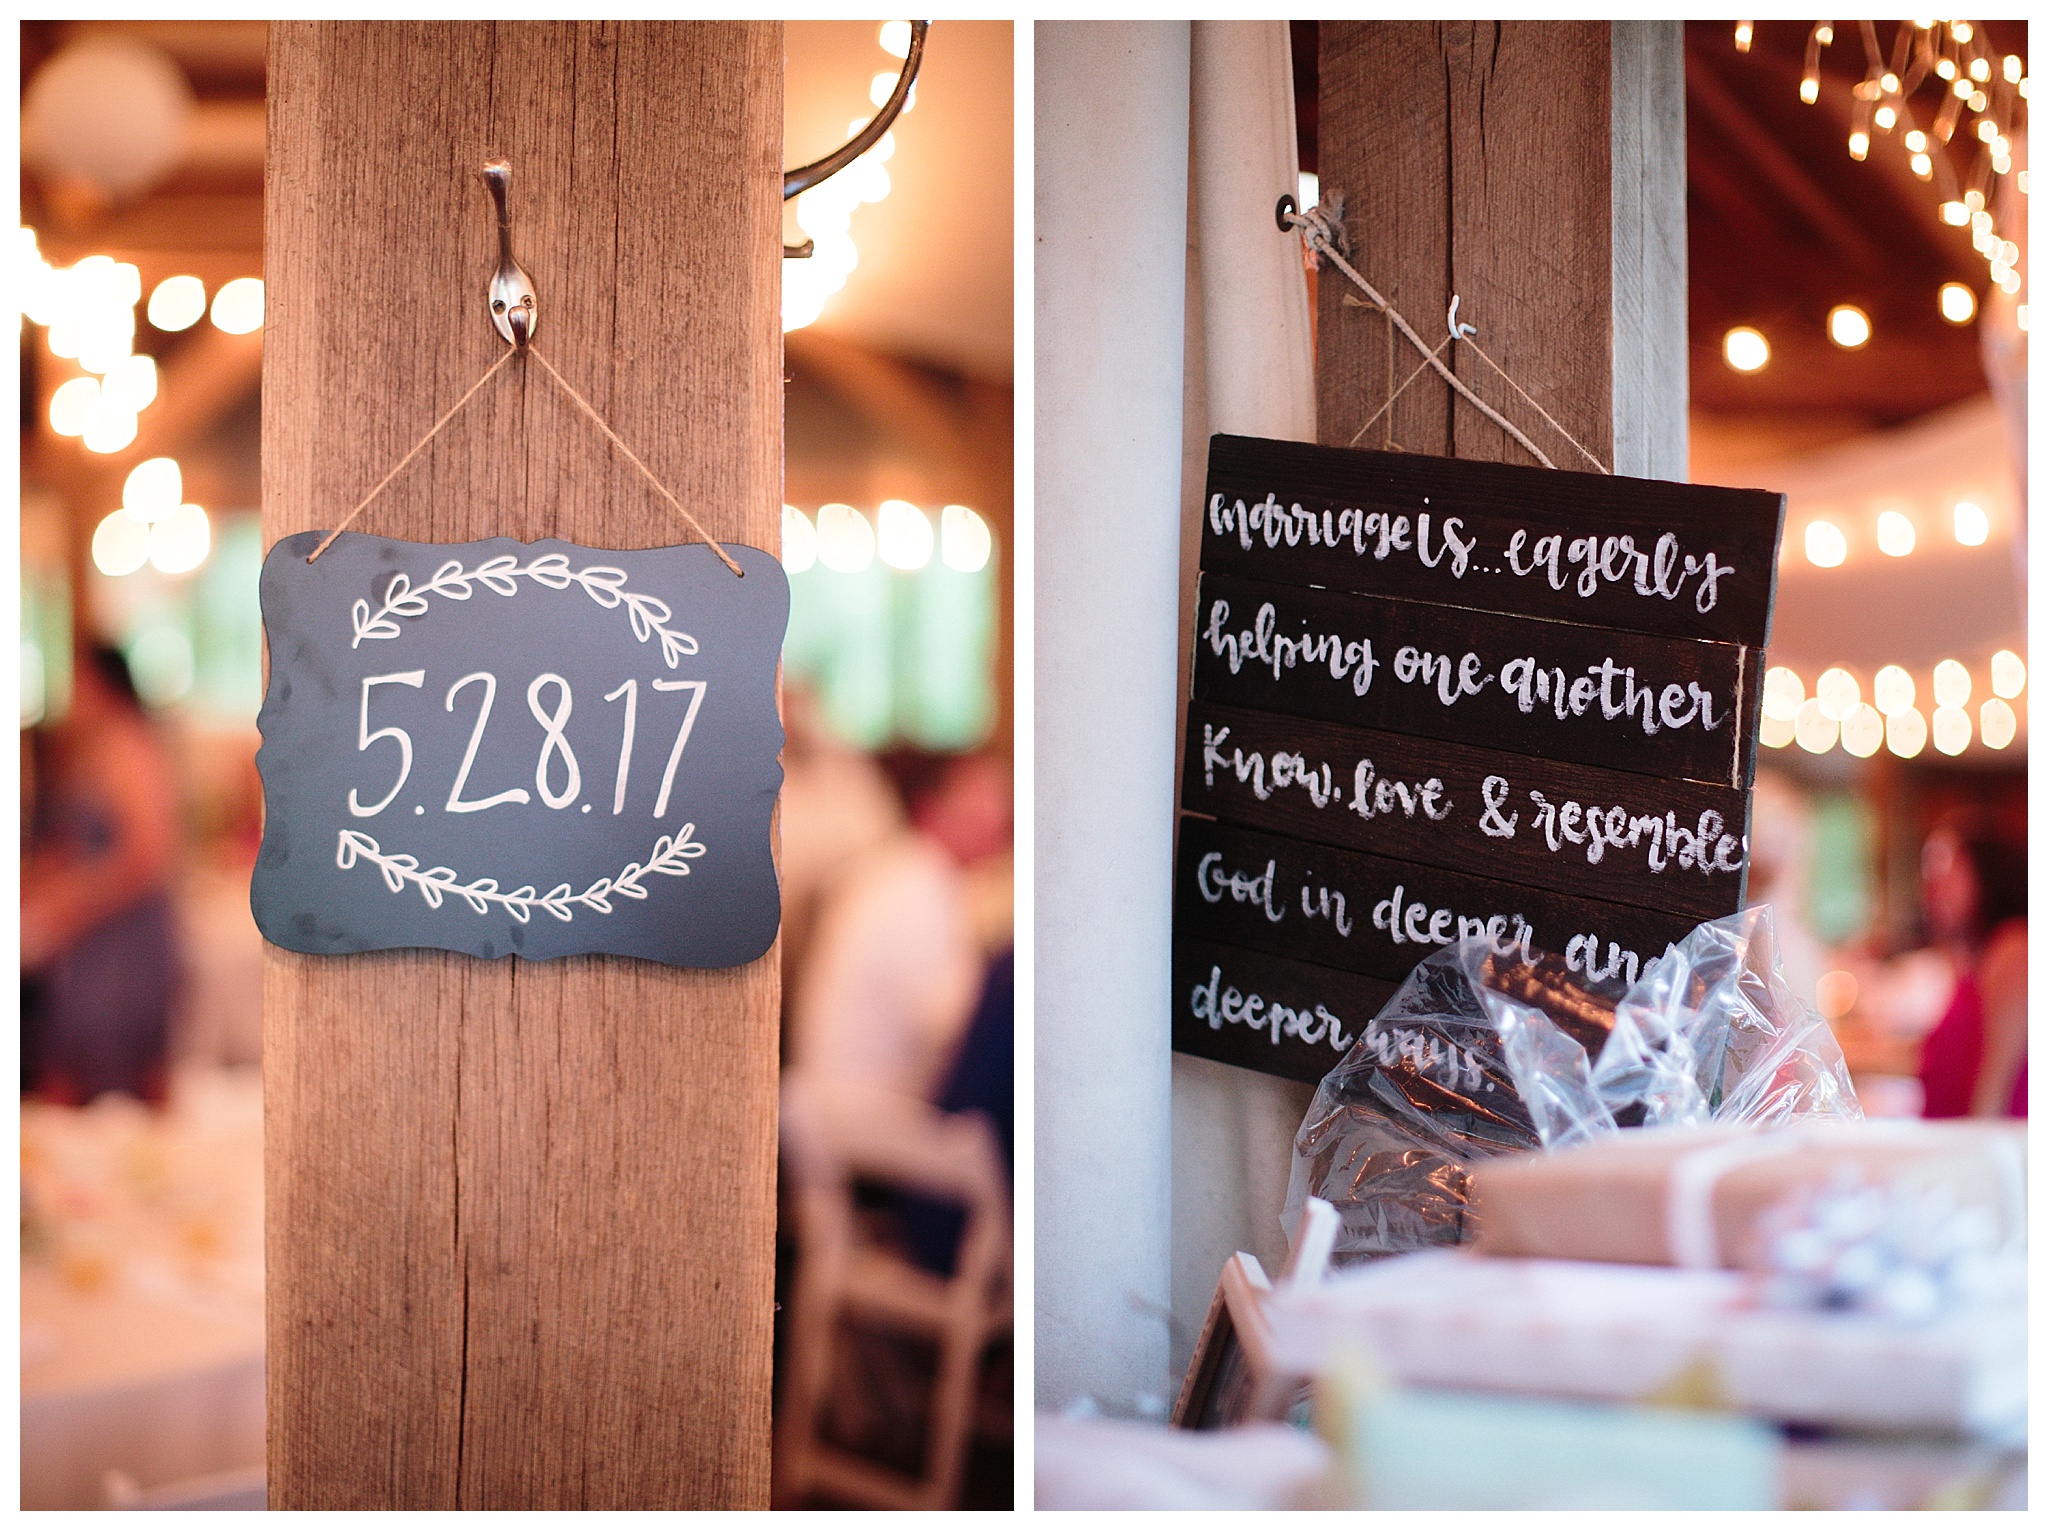 5.28.17
marriage is... eagerly
helping one another
Know, love & resemble
God in deeper and
deeper ways.